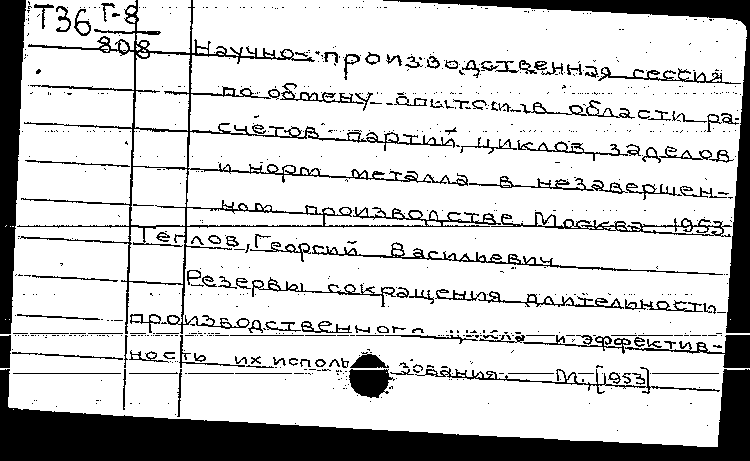 Т36 Г-8
808
Научно-производственная сессия
по обмену опытом в области ра-
счётов партий, циклов, заделов
и норм металла в незавершен-
ном производстве. Москва. 1953.
Теплов, Георгий Васильевич
Резервы сокращения длительности
производственного цикла и эффектив-
ность их использования. М., [1953]